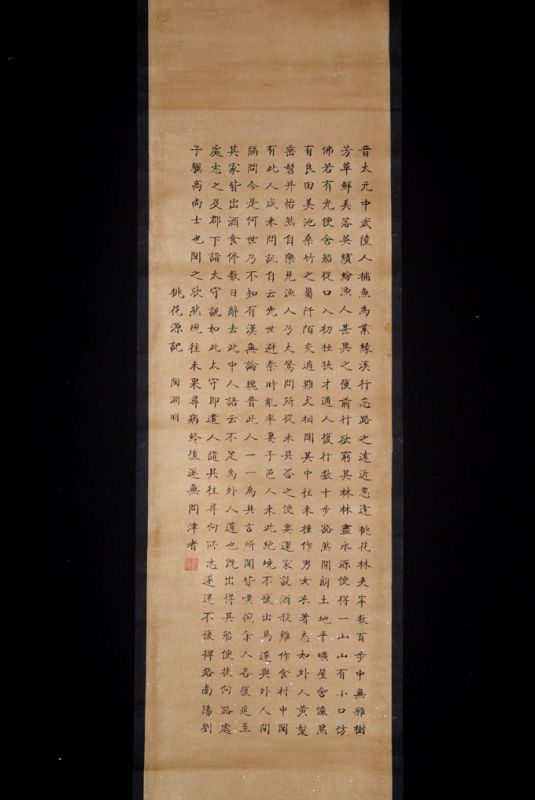 晉太元中武陵人捕魚為業緣溪行忘路之遠近忽逢桃花林夾岸數百步中無雜樹
芳草鮮美落英繽紛漁人甚異之復前行欲窮其林林盡水源便得一山山有小口仿
佛若有光便舍船從口入初極狹才通人復行數十步豁然開朗土地平曠屋舍儼然
有良田美池桑竹之屬阡陌交通雞犬相聞其中往來種作男女衣著悉如外人黃髮
垂髫并怡然自樂見漁人乃大驚問所從來具答之便要還家設酒殺雞作食村中聞
有此人咸來問訊自云先世避秦時亂率妻子邑人來此絕境不復出焉遂與外人間
隔問今是何世乃不知有漢無論魏晉此人一一為具言所聞皆嘆惋余人各復延至
其家皆出酒食停數日辭去此中人語云不足為外人道也既出得其船便扶向路處
處志之及郡下詣太守說如此太守即遣人隨其往尋向所志遂迷不復得路南陽劉
子驥高尚士也聞之欣然規往未果尋病終後遂無問津者
桃花源記 陶淵明